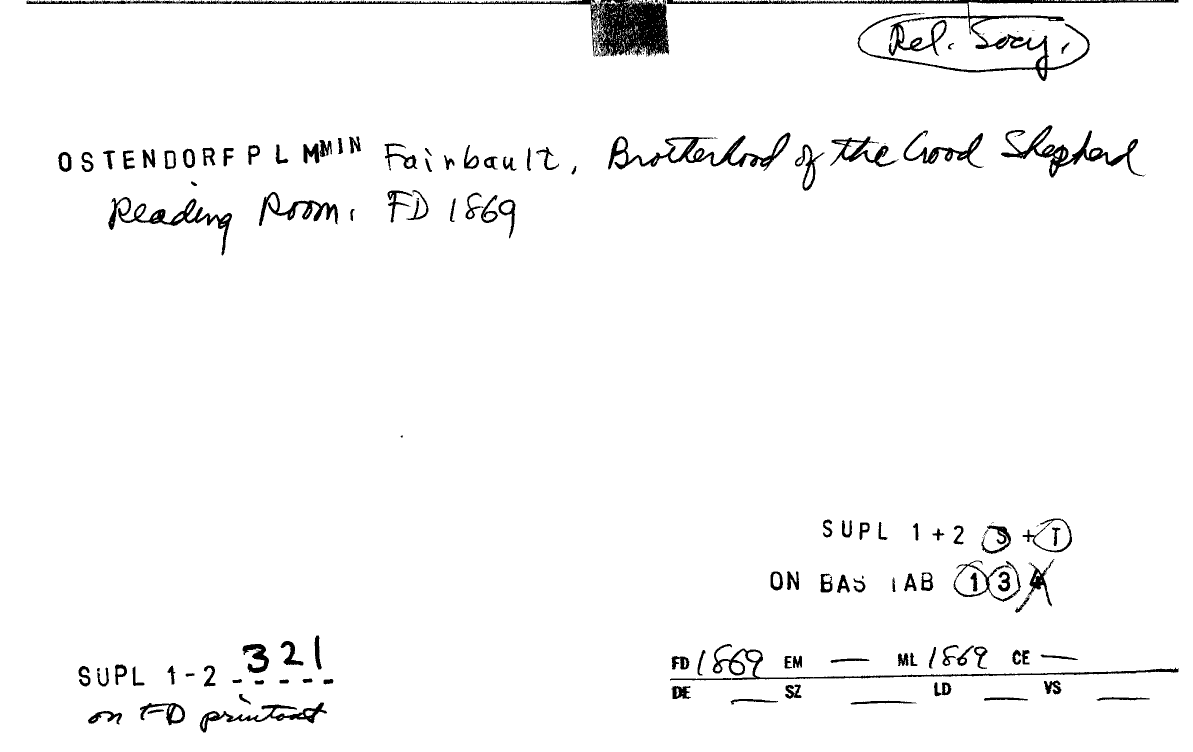 Rel. Socy.
OSTENDORF P L M MIN Fairbault, Brotherhood of the Good Shepherd
Reading Room. FD 1869
SUPL 1+2 S + T
ON BAS TAB 1 3 4
SUPL 1-2 321
on FD printout
FD 1869 EM — ML 1869 CE —
DE __ SZ __ LD __ VS __